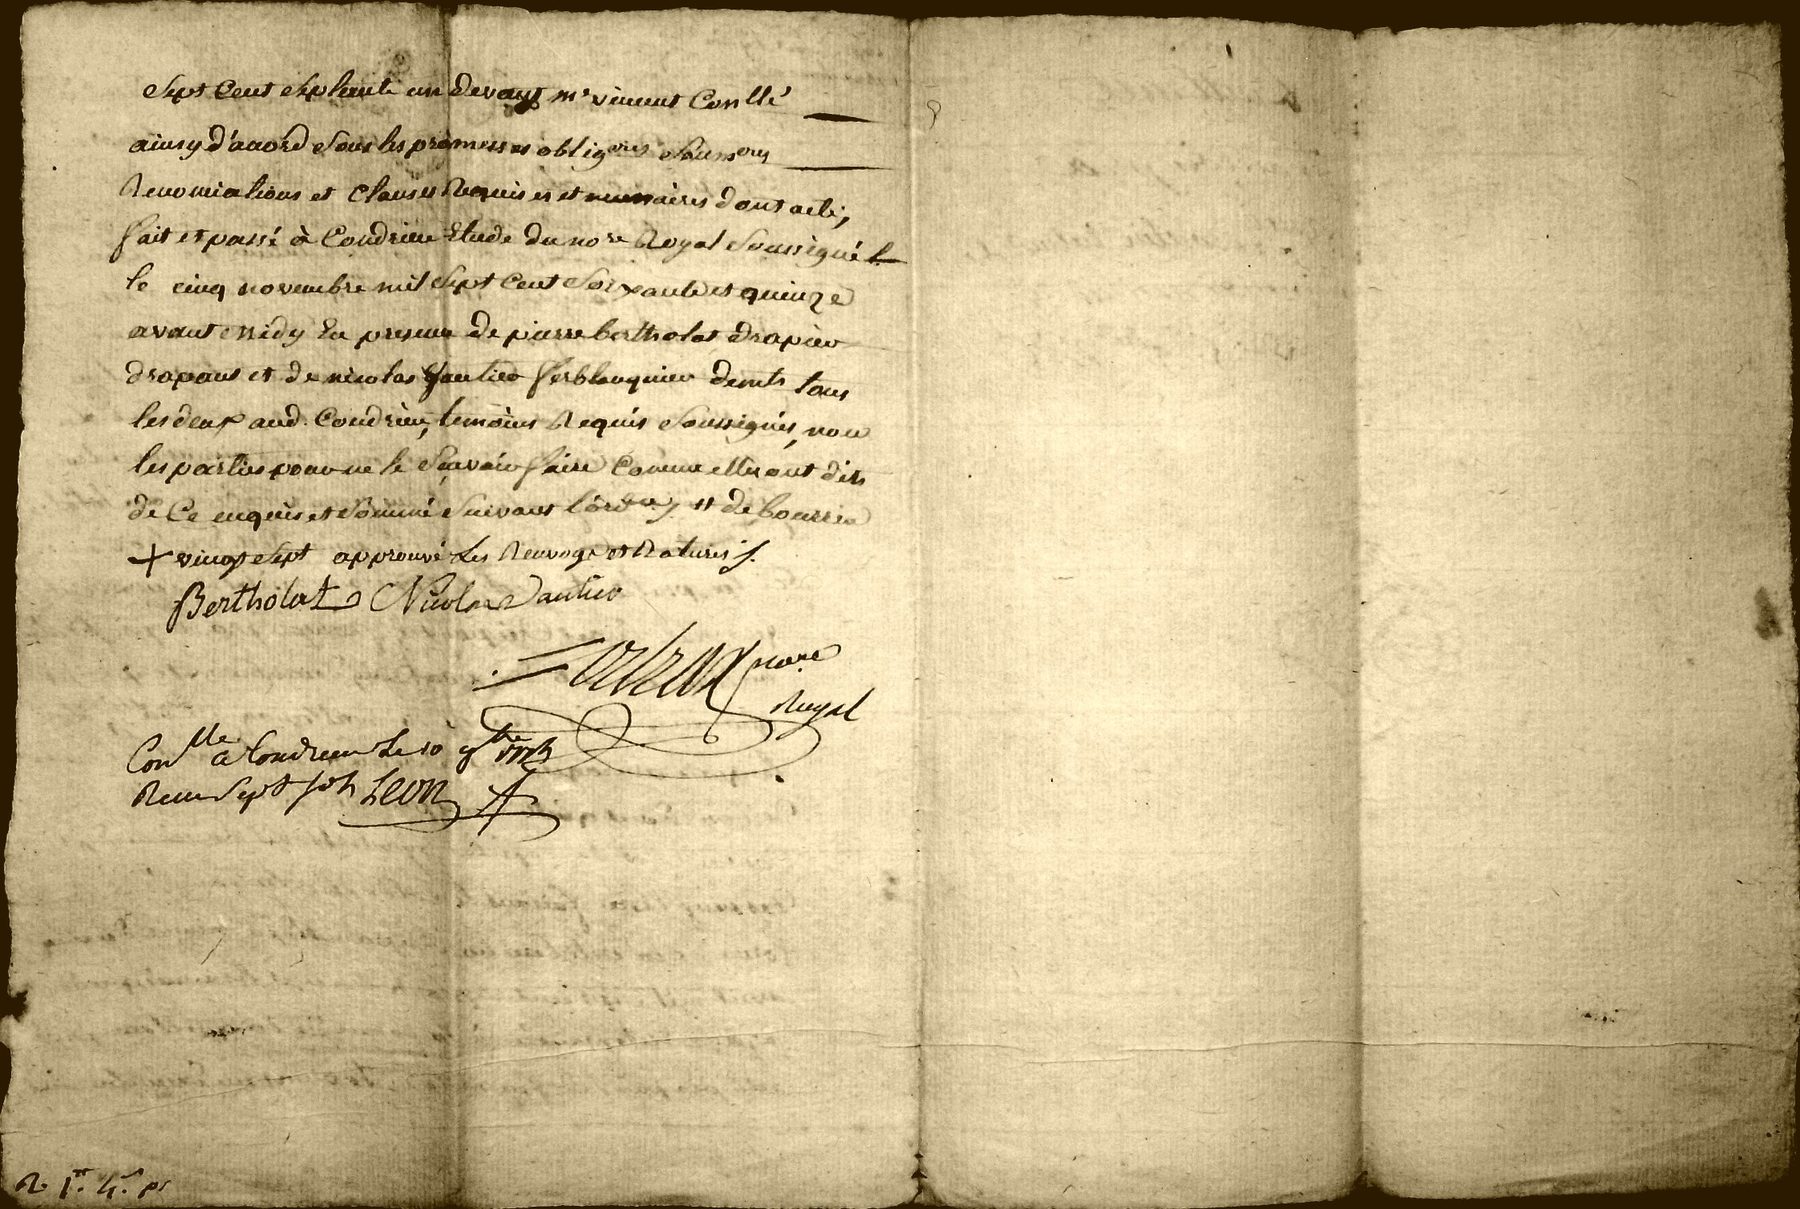 Sept Cent Septante un devant me vincent Conllé
ainsy d'acord Sous les promesses obligons Soumons
Renonciations et Clauses Requises et necessaires dont acte,
fait et passé à Condrieu Etude du nore Royal Soussigné
le cinq novembre mil Sept Cent Soixante et quinze
avant midy En presence de pierre bertholat drapier
drapant et de nicolas Gautier ferblanquier demts tous
les deux aud. Condrieu, temoins Requis Soussignés, non
les parties pour ne le Sçavoir faire Comme elles ont dit
de Ce enquis et Sommé Suivant l'ordce
+ vingt Sept approuvé Les Renvoys et Ratures
Bertholat Nicolas Gautier
nore
Royal
Conlle a Condrieu Le 10 9bre 1775
Recu Sept Sols Leon